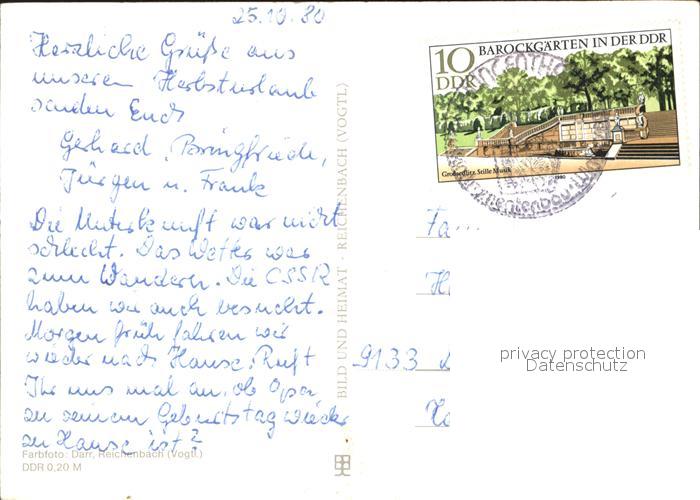 25.10.80
Herzliche Grüße aus
unserem Herbsturlaub
senden Euch
Gerhard, Bringfriede,
Jürgen u. Frank
Die Unterkunft war nicht
schlecht. Das Wetter war
zum Wandern. Die CSSR
haben wir auch besucht.
Morgen früh fahren wir
wieder nach Hause. Ruft
Ihr uns mal an, ob Opa
zu seinem Geburtstag wieder
zu Hause ist?
Farbfoto: Darr, Reichenbach (Vogtl.)
DDR 0,20 M
BILD UND HEIMAT · REICHENBACH (VOGTL)
10
DDR
BAROCKGÄRTEN IN DER DDR
Großsedlitz, Stille Musik
1980
Fa...
9133
privacy protection
Datenschutz